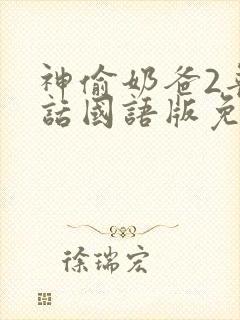 神偷奶爸2
話國語版免
徐瑞宏